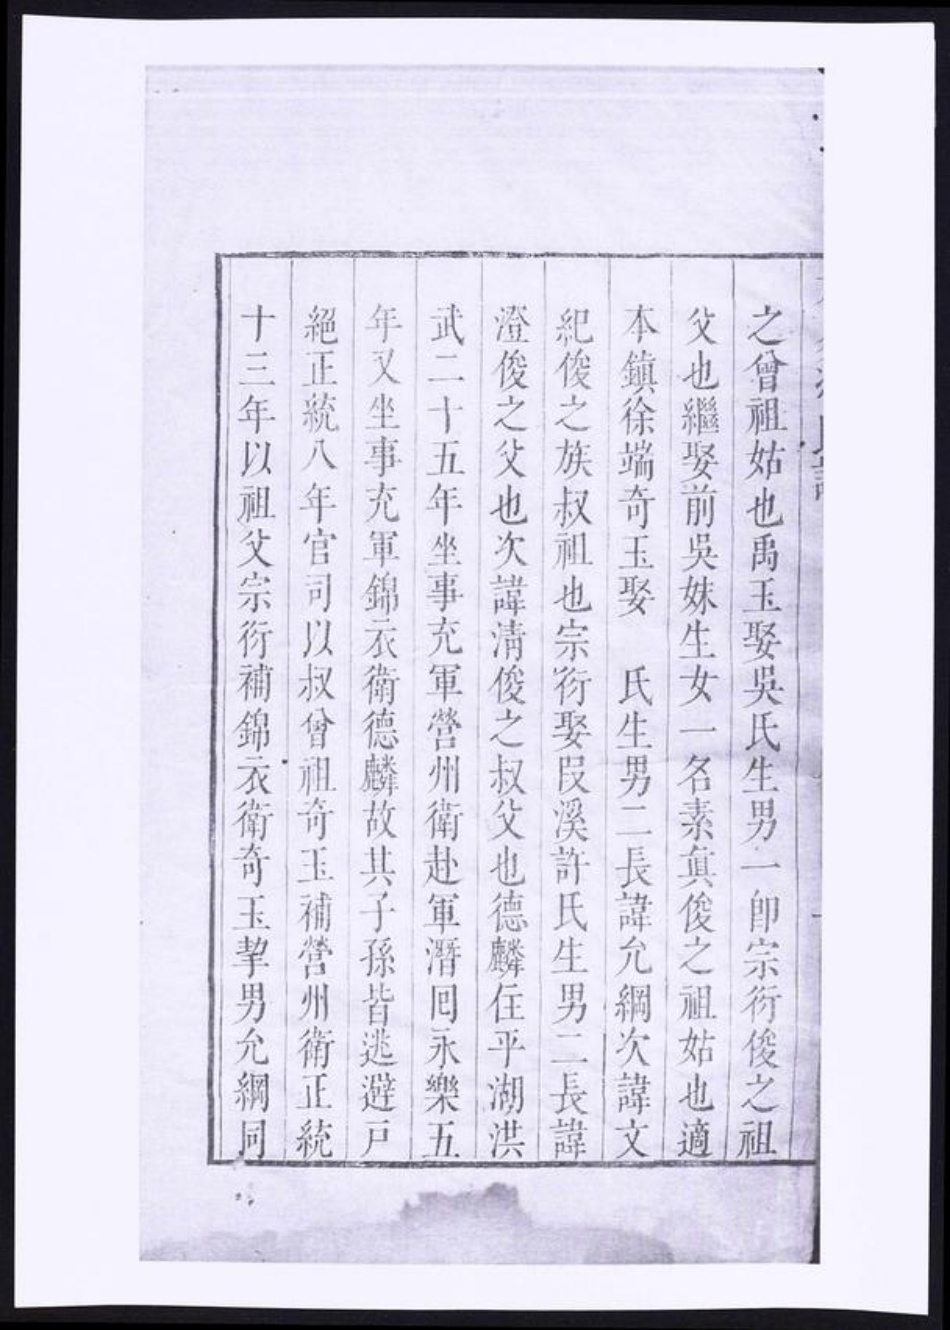 之曾祖姑也禹玉娶吳氏生男一卽宗衍俊之祖
父也繼娶前吳妹生女一名素眞俊之祖姑也適
本鎭徐端奇玉娶　氏生男二長諱允綱次諱文
紀俊之族叔祖也宗衍娶叚溪許氏生男二長諱
澄俊之父也次諱淸俊之叔父也德麟住平湖洪
武二十五年坐事充軍營州衛赴軍潛囘永樂五
年又坐事充軍錦衣衛德麟故其子孫皆逃避戸
絕正統八年官司以叔曾祖奇玉補營州衛正統
十三年以祖父宗衍補錦衣衛奇玉挈男允綱同